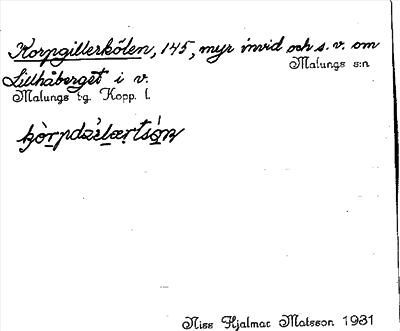 Korpgillerkölen, 145, myr invid och s. v. om
Malungs s:n
Lillhåberget i v.
Malungs tg. Kopp. l.
Niss Hjalmar Matsson 1931